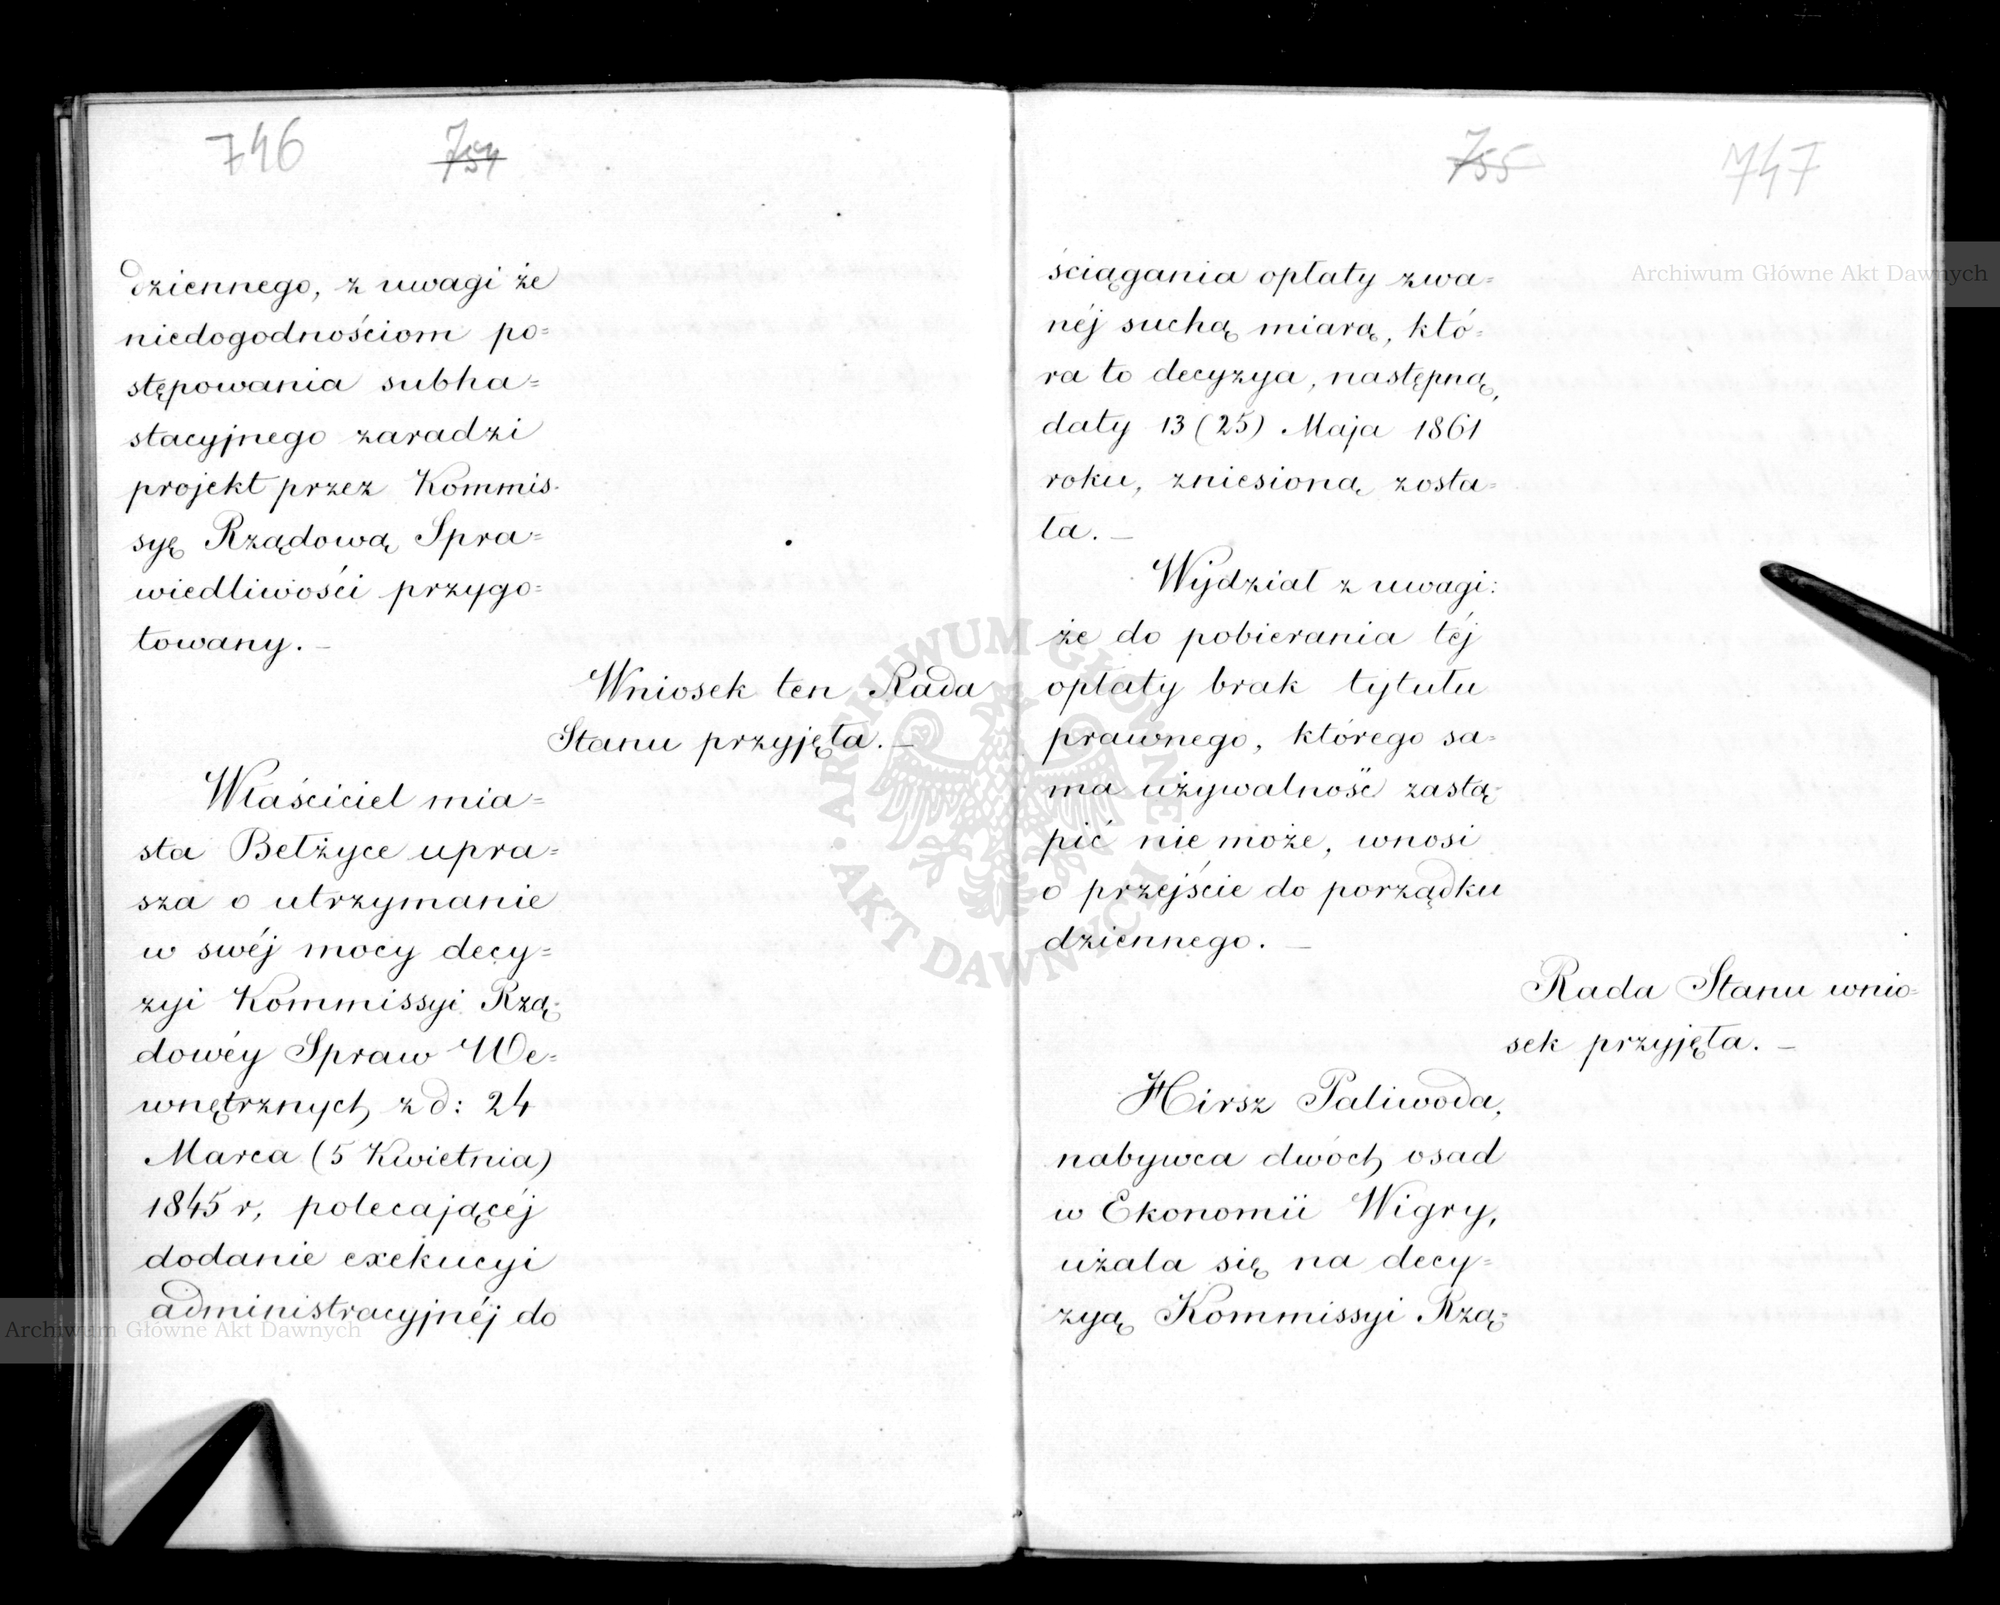 746 754
dziennego, z uwagi że
niedogodnościom po=
stępowania subha=
stacyjnego zaradzi
projekt przez Kommis-
syę Rządową Spra=
wiedliwości przygo=
towany. –
Wniosek ten Rada
Stanu przyjęła. –
Właściciel mia=
sta Bełżyce upra=
sza o utrzymanie
w swéj mocy decy=
zyi Kommissyi Rzą=
dowéy Spraw We=
wnętrznych z d: 24
Marca (5 Kwietnia)
1845 r, polecającéj
dodanie exekucyi
administracyjnéj do
755 747
ściągania opłaty zwa=
néj suchą miarą, któ=
ra to decyzya, następną,
daty 13 (25) Maja 1861
roku, zniesioną zosta=
ła. –
Wydział z uwagi:
że do pobierania téj
opłaty brak tytułu
prawnego, którego sa=
ma używalność zastą=
pić nie może, wnosi
o przejście do porządku
dziennego. –
Rada Stanu wnio=
sek przyjęła. –
Hirsz Paliwoda,
nabywca dwóch osad
w Ekonomii Wigry,
użala się na decy=
zyą Kommissyi Rzą=
Archiwum Główne Akt Dawnych
Archiwum Główne Akt Dawnych
ARCHIWUM GŁÓWNE
AKT DAWNYCH